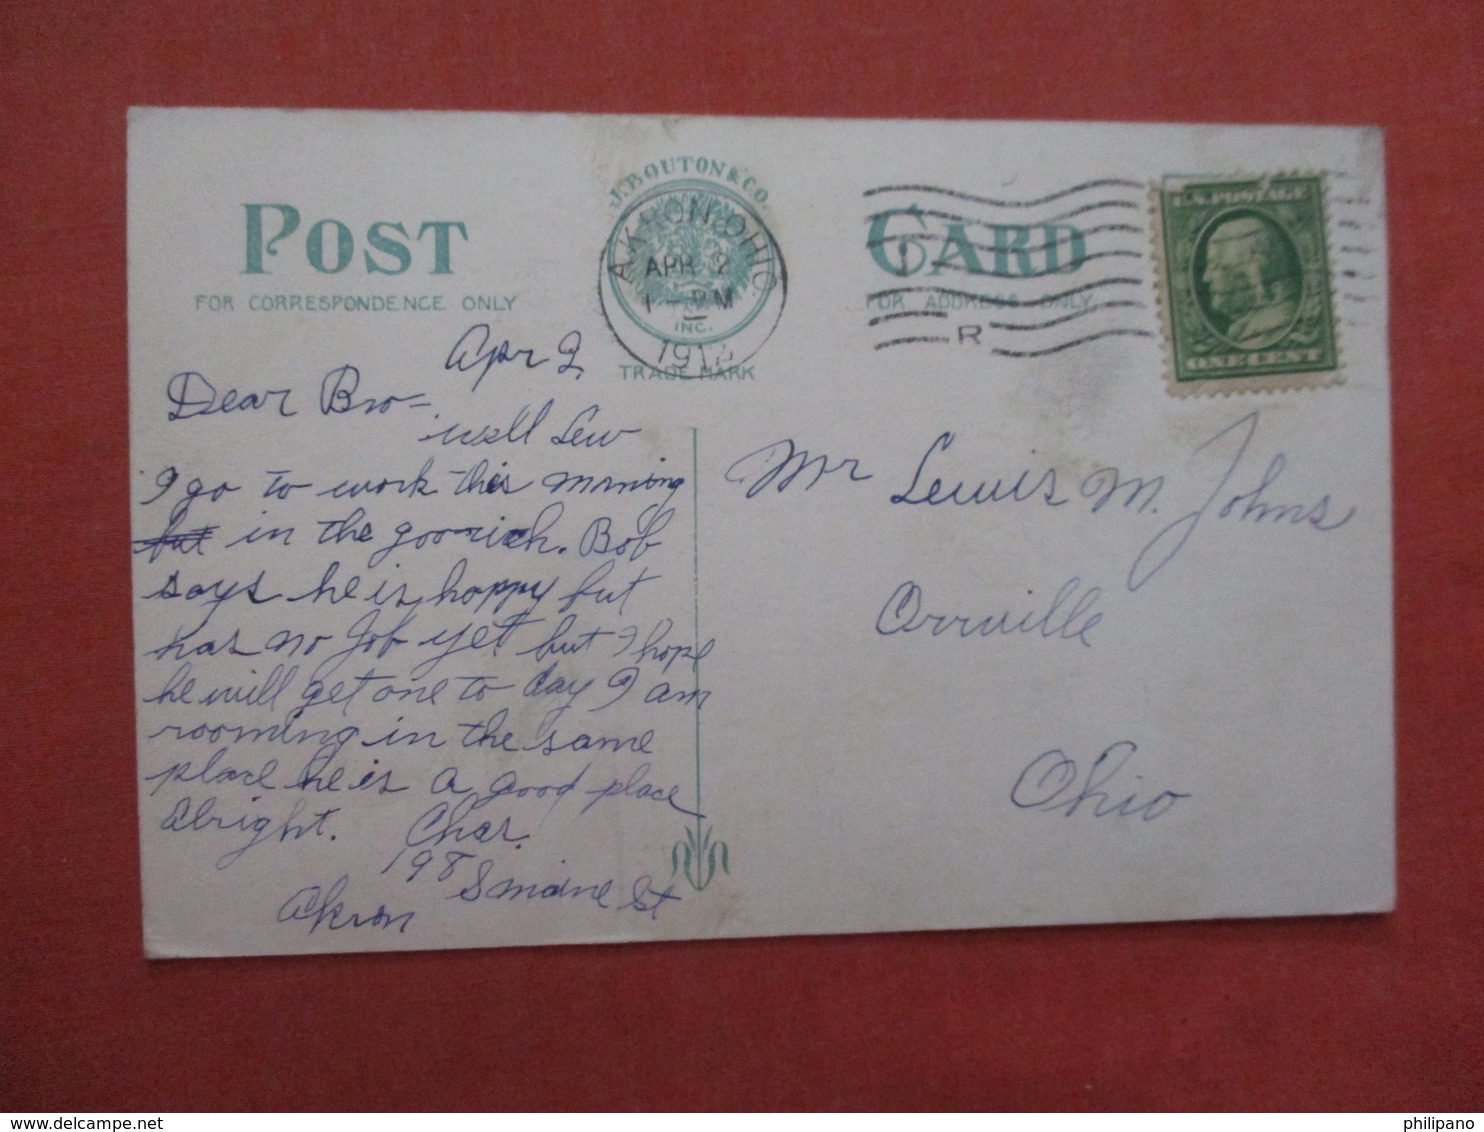 J. BOUTON & CO.
INC.
TRADE MARK
POST CARD
FOR CORRESPONDENCE ONLY
FOR ADDRESS ONLY
AKRON, OHIO
APR 2
1 PM
R
U.S. POSTAGE
ONE CENT
Apr 2
Dear Bro-
well Lew
I go to work this morning
but in the goorich. Bob
says he is happy but
has no Job yet but I hope
he will get one to day I am
rooming in the same
place he is a good place
alright. Char.
198 St
Akron
Mr Lewis M. Johns
Orrville
Ohio
philipano